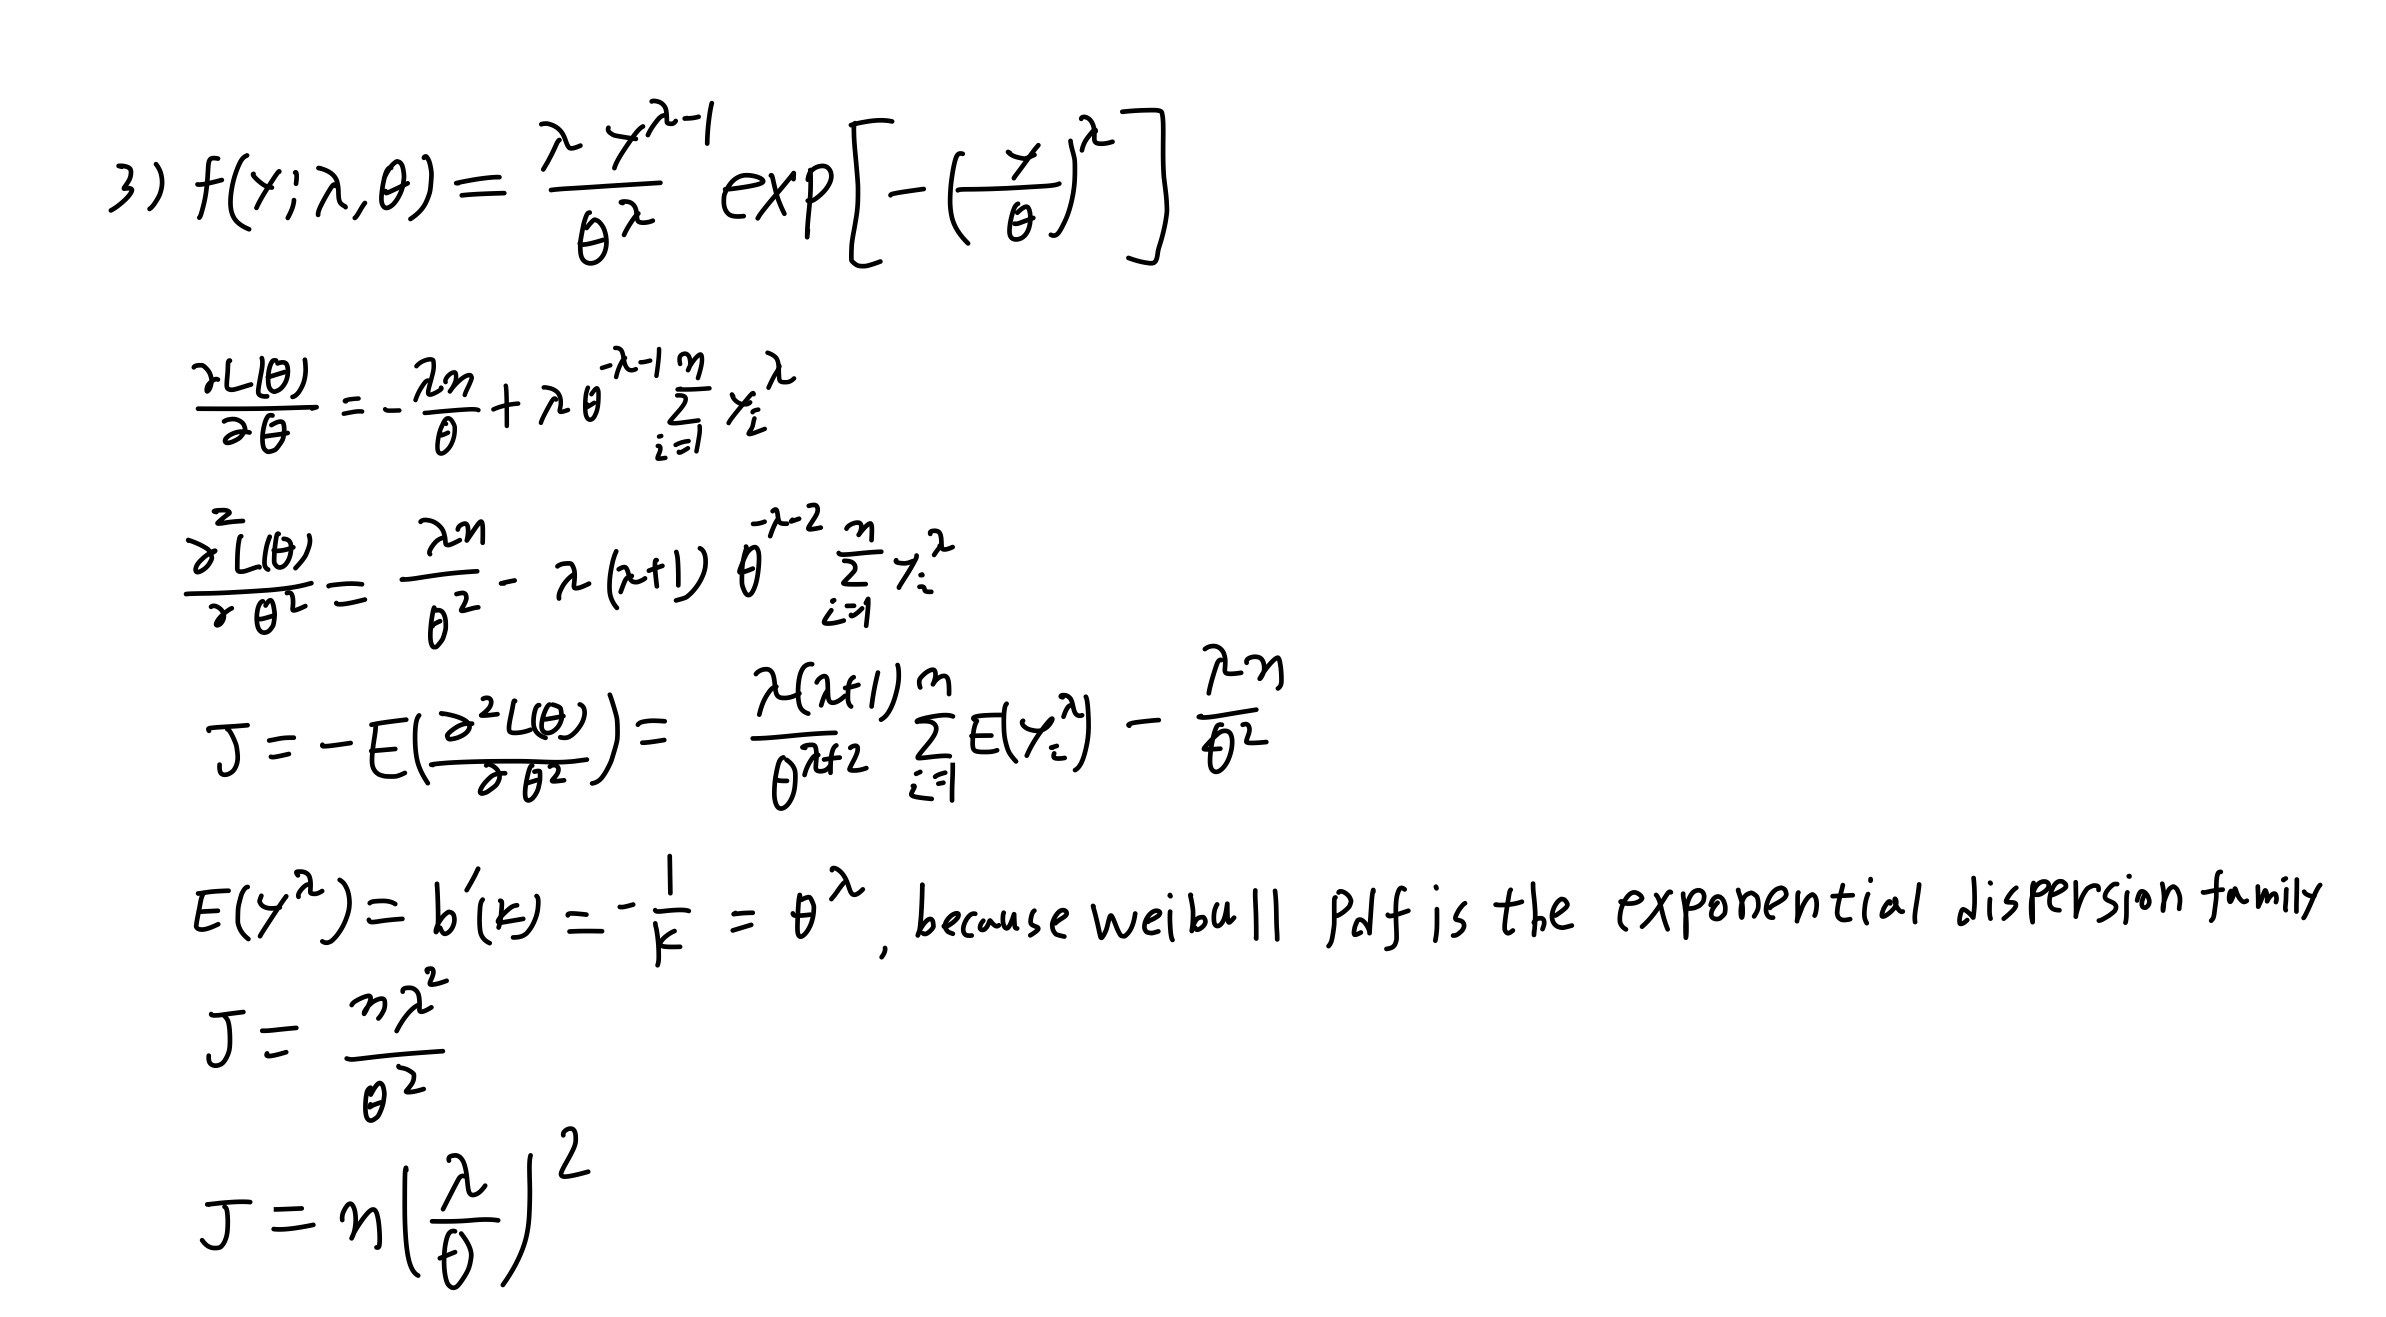 3) f(y; λ, θ) = \frac{λ y^{λ-1}}{θ^λ} exp[-(\frac{y}{θ})^λ]
\frac{∂L(θ)}{∂θ} = -\frac{λn}{θ} + λθ^{-λ-1} \sum_{i=1}^{n} y_i^λ
\frac{∂^2 L(θ)}{∂θ^2} = \frac{λn}{θ^2} - λ(λ+1) θ^{-λ-2} \sum_{i=1}^{n} y_i^λ
J = -E(\frac{∂^2 L(θ)}{∂θ^2}) = \frac{λ(λ+1)}{θ^{λ+2}} \sum_{i=1}^{n} E(y_i^λ) - \frac{λn}{θ^2}
E(y^λ) = b'(k) = -\frac{1}{k} = θ^λ, because weibull pdf is the exponential dispersion family
J = \frac{nλ^2}{θ^2}
J = n(\frac{λ}{θ})^2